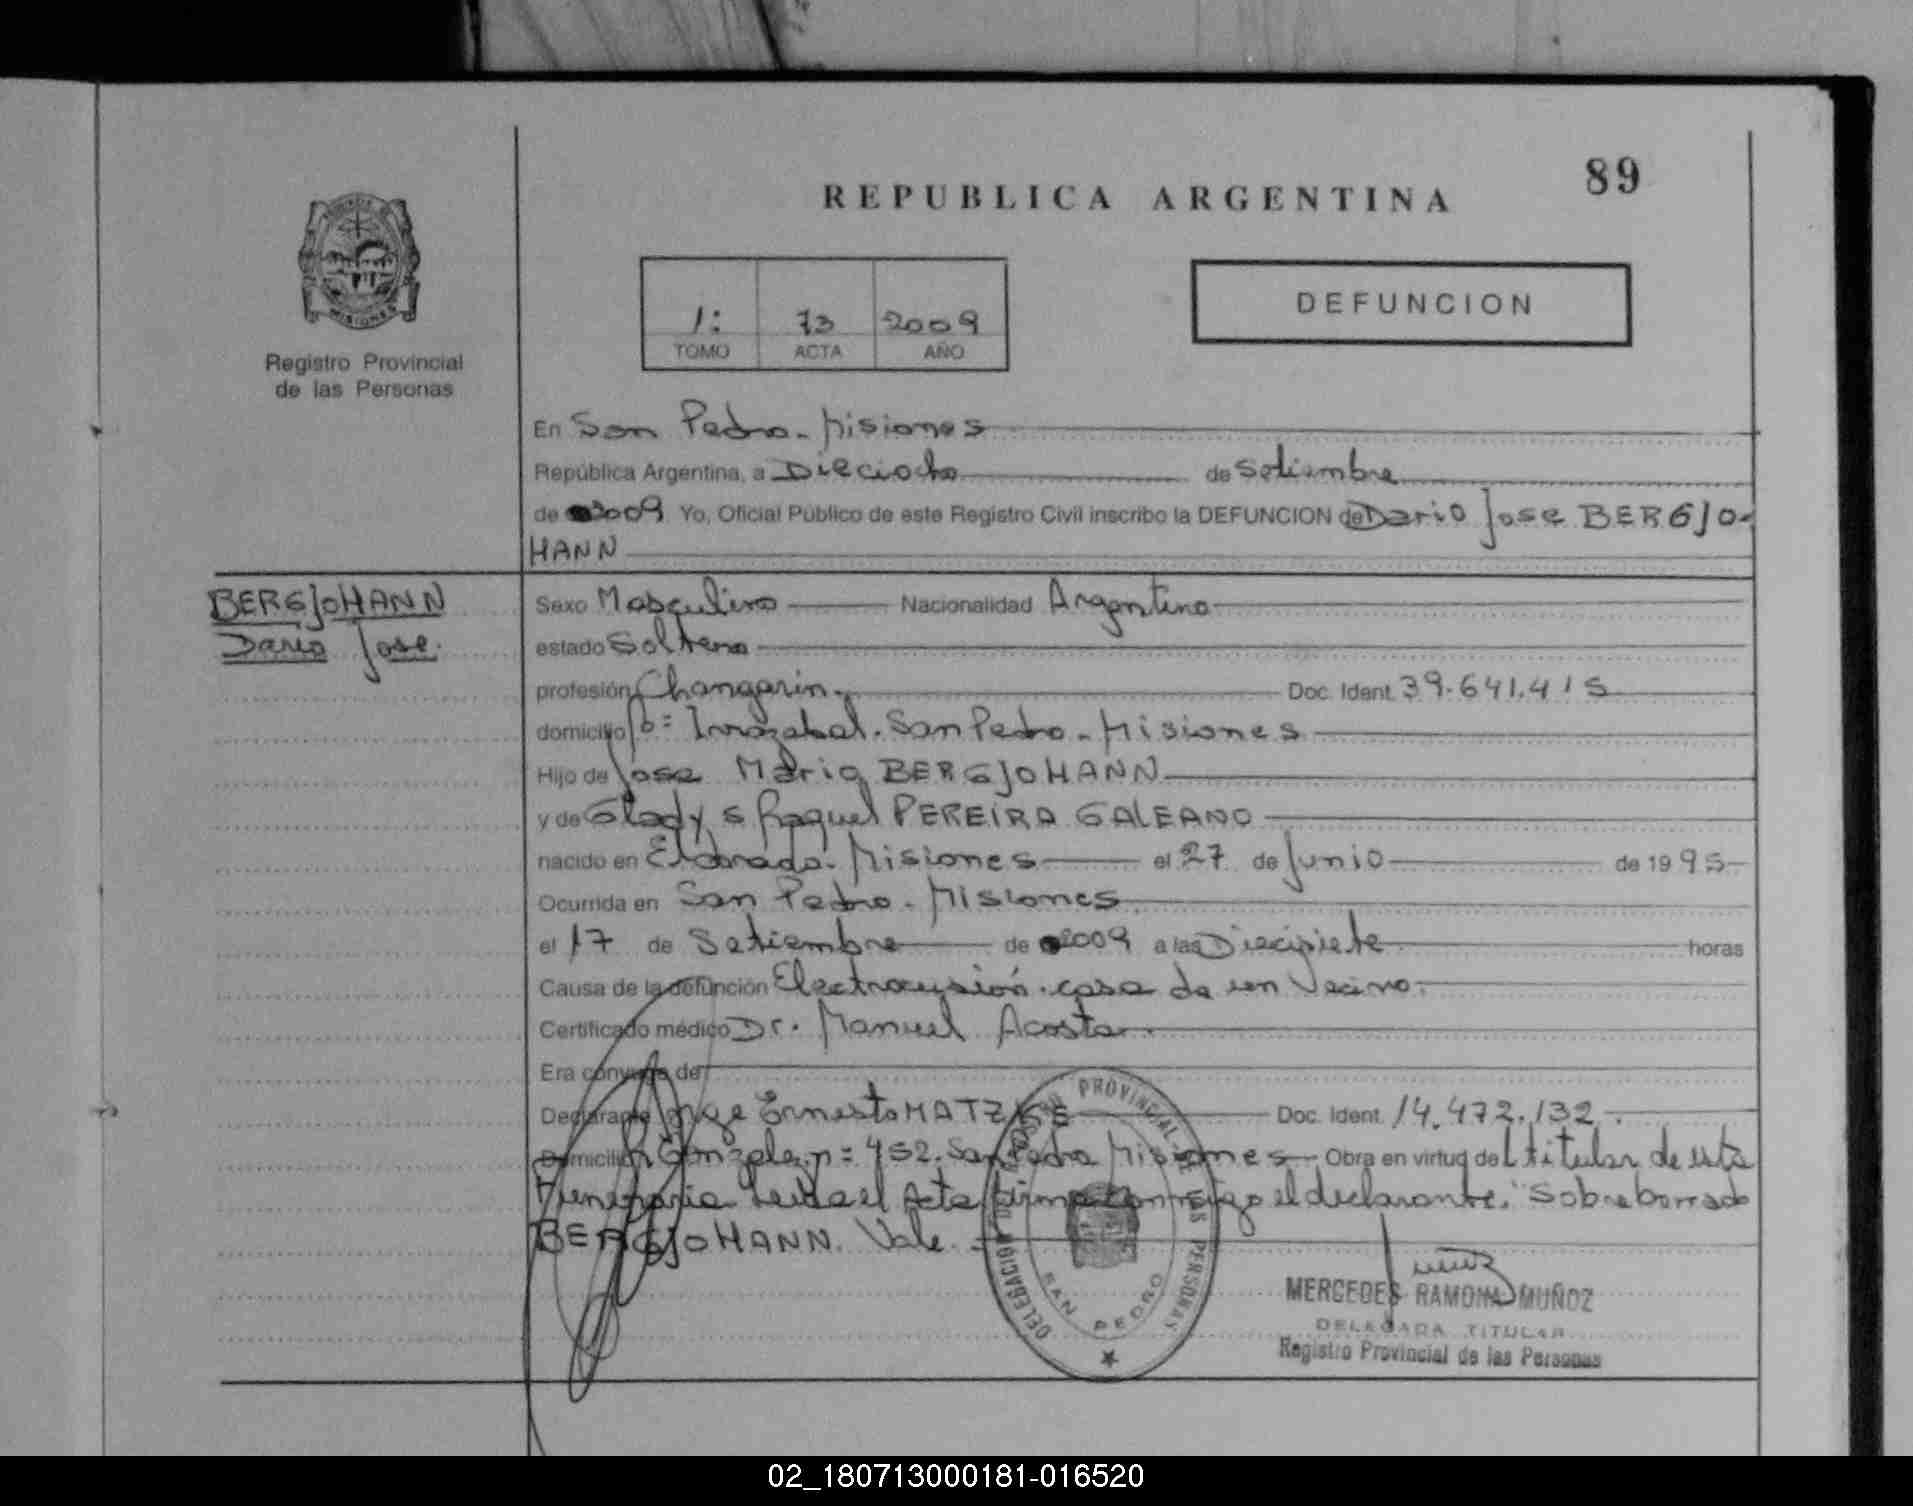 89
REPUBLICA ARGENTINA
1: 73 2009
TOMO ACTA AÑO
DEFUNCION
PROVINCIA DE
MISIONES
Registro Provincial
de las Personas
En San Pedro - Misiones
República Argentina, a Dieciocho de Setiembre
de 2009 Yo, Oficial Público de este Registro Civil inscribo la DEFUNCION de Dario Jose BERGJO-
HANN
BERGJOHANN
Dario Jose.
Sexo Masculino Nacionalidad Argentino
estado Soltero
profesión Changarin. Doc. Ident. 39.641.415
domicilio Bº= Irrazabal. San Pedro - Misiones
Hijo de Jose Maria BERGJOHANN
y de Gladys Raquel PEREIRA GALEANO
nacido en Eldorado - Misiones el 27 de Junio de 1995
Ocurrida en San Pedro - Misiones
el 17 de Setiembre de 2009 a las Diecisiete horas
Causa de la defunción Electrocusión. casa de un Vecino.
Certificado médico Dr. Manuel Acosta.
Era cónyuge de
Declarante Jorge Ernesto MATZKE Doc. Ident. 14.472.132.
Domicilio Gonzalez nº= 452. San Pedro Misiones Obra en virtud del titular de esta
Funeraria Leida el Acta firma conmigo el declarante. "Sobreborrado
BERGJOHANN. Vale.
DELEGACION PROVINCIAL DE LAS PERSONAS
SAN PEDRO
MERCEDES RAMONA MUÑOZ
DELEGADA TITULAR
Registro Provincial de las Personas
02_180713000181-016520